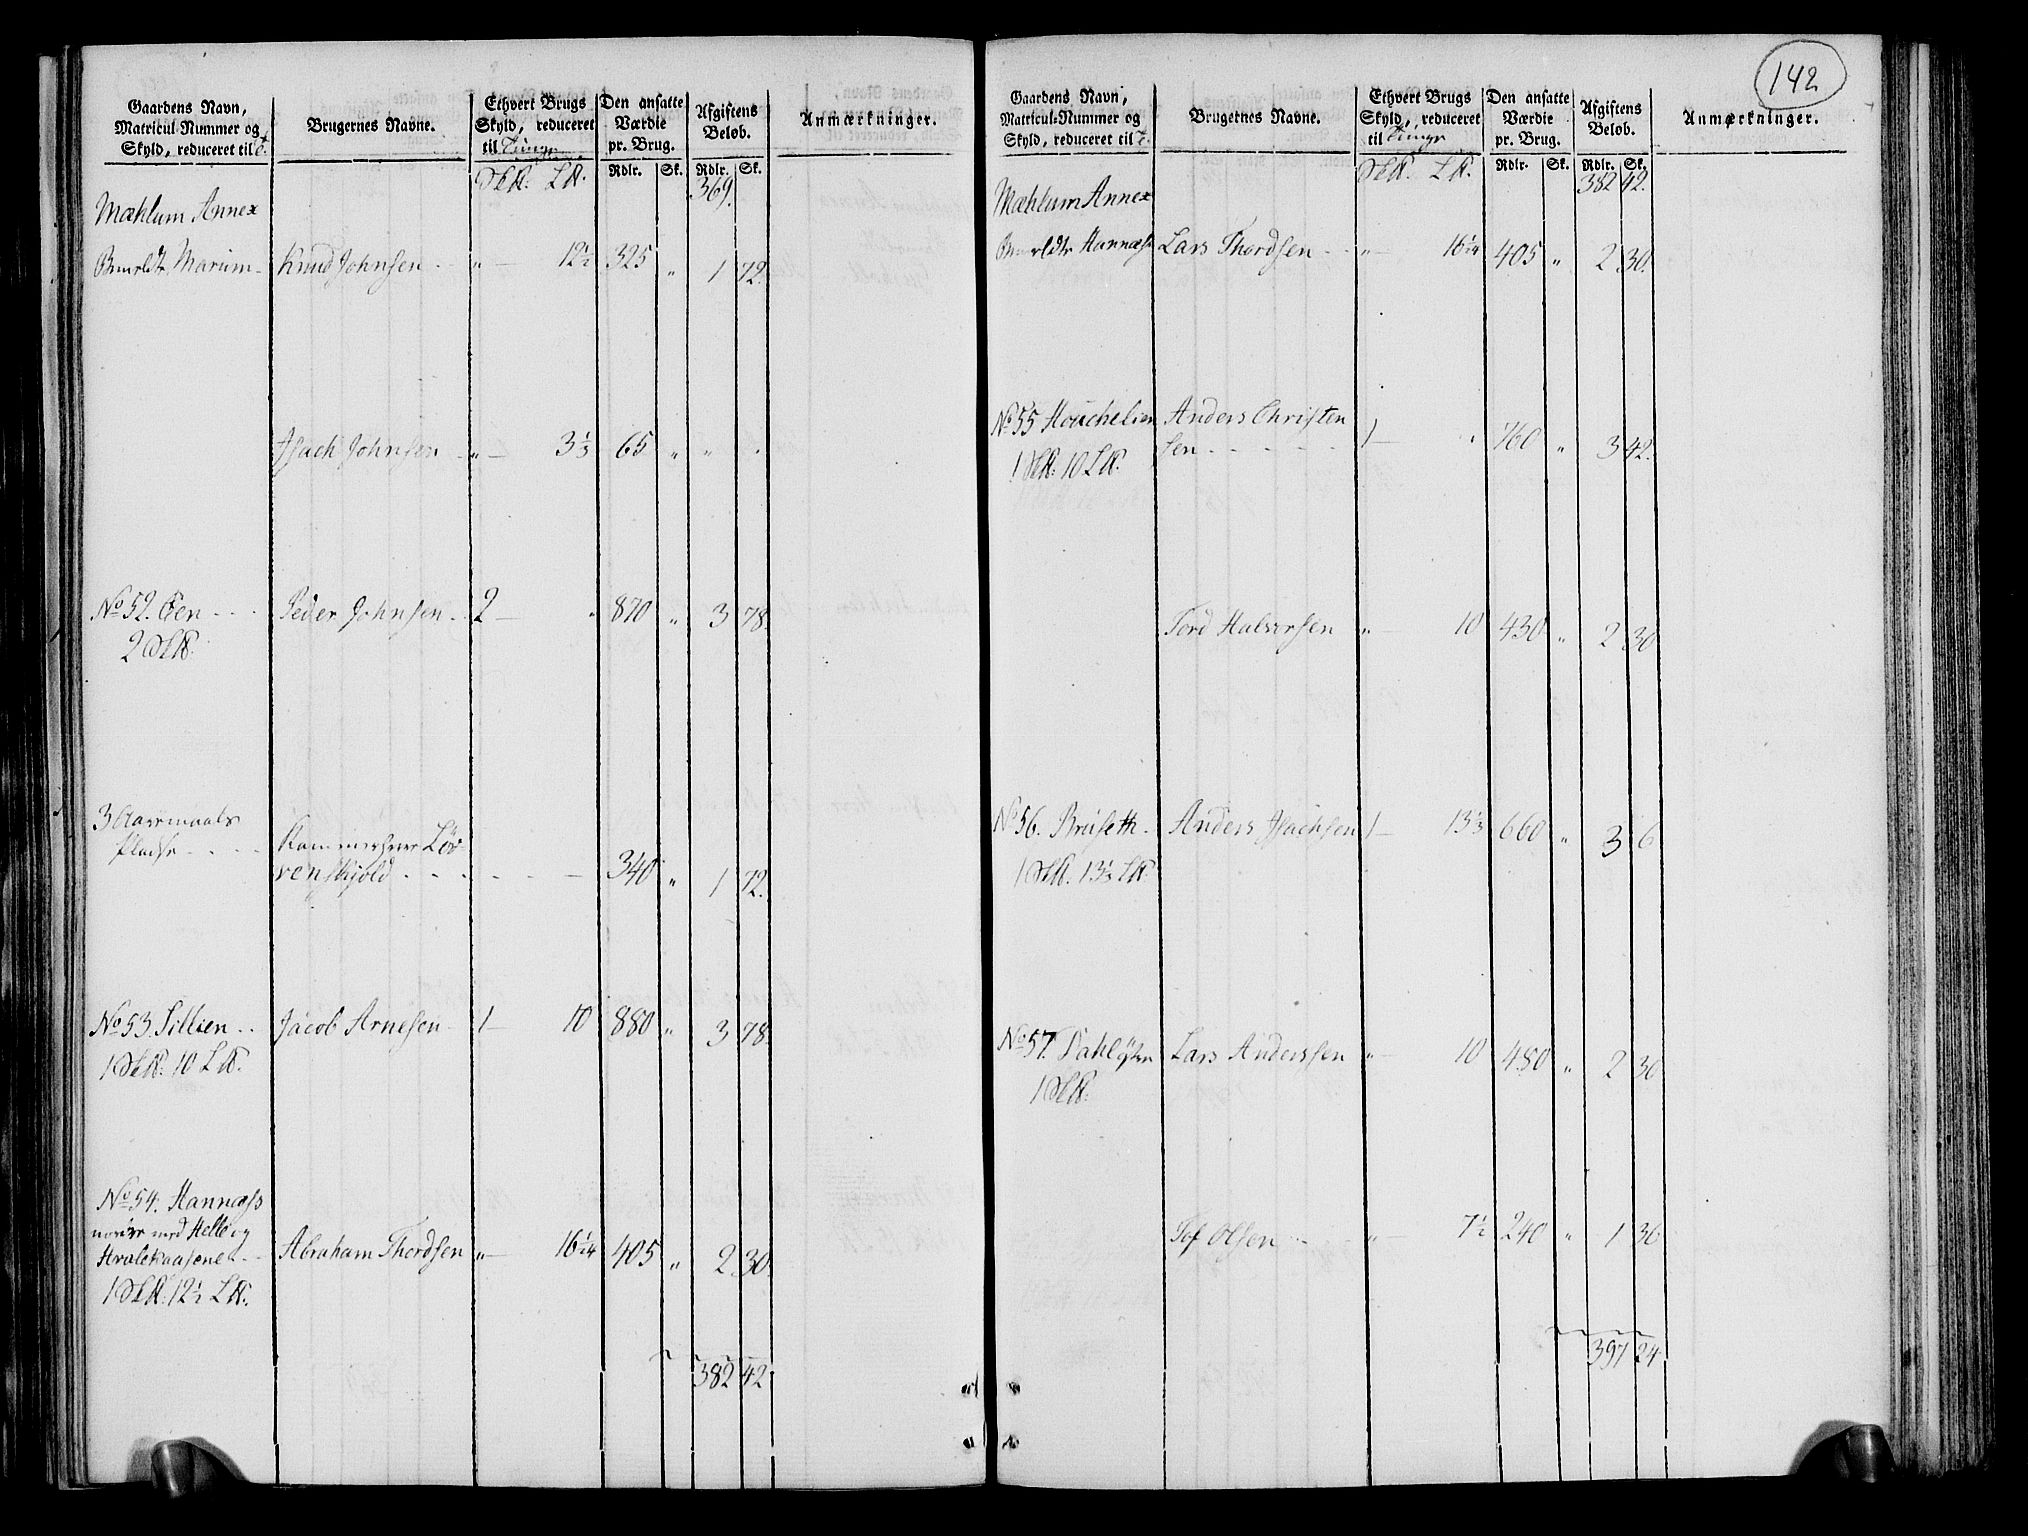 142
Gaardens Navn,
Matricul-Nummer og
Skyld, reduceret til
Brugernes Navne.
Ethvert Brugs
Skyld, reduceret
til Tunge
Den ansatte
Værdie
pr. Brug.
Afgiftens
Beløb.
Anmærkninger.
Rdlr. Sk. Rdlr. Sk.
369.
Mæhlum Annex
Marum Knud Johnsen 〃 12½ 325 〃 1 72.
Isach Johnsen 〃 3⅓ 65 〃 〃 〃
No 52. Een Peder Johnsen 2 〃 870 〃 3 78.
2
3 Aaremaals
Pladse
Kammerherre Löv
venskjold 340 〃 1 72.
No 53. Sillien Jacob Arnesen 1 10 880 〃 3 78.
1 10
No 54. Hannæss
nordre med Helle og
Hvalekaasene Abraham Thordsen 〃 16¼ 405 〃 2 30.
1 12½
382 42
Gaardens Navn,
Matricul-Nummer og
Skyld, reduceret til
Brugernes Navne.
Ethvert Brugs
Skyld, reduceret
til Tunge
Den ansatte
Værdie
pr. Brug.
Afgiftens
Beløb.
Anmærkninger.
Rdlr. Sk. Rdlr. Sk.
382 42.
Mæhlum Annex
Hannæss Lars Thordsen 〃 16¼ 405 〃 2 30.
No 55 Houchelien Anders Christen
sen 1 〃 760 〃 3 42.
1 10
Tord Halversen 〃 10 430 〃 2 30
No 56. Bruseth Anders Isachsen 1 13⅓ 660 〃 3 6
1 13⅓
No 57. Lars Anderssen 〃 10 480 〃 2 30
1
Tof Olsen 〃 7½ 240 〃 1 36
397 24